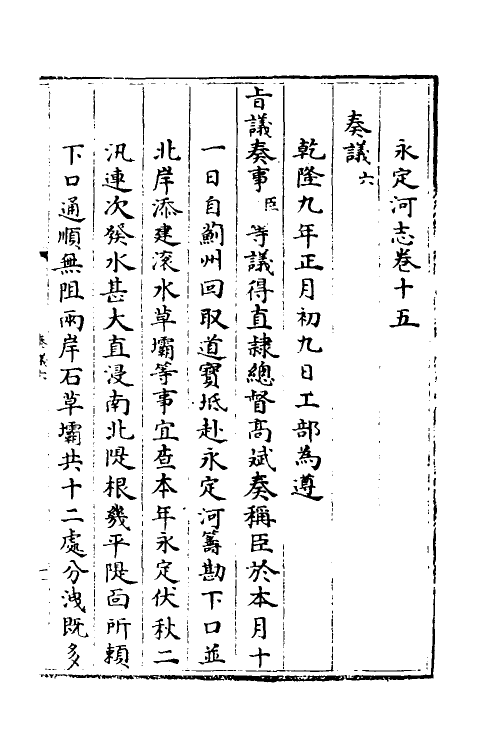 永定河志卷十五
奏議六
乾隆九年正月初九日工部為遵
旨議奏事臣等議得直隷總督高斌奏稱臣於本月十
一日自薊州回取道寶坻赴永定河籌勘下口並
北岸添建滚水草壩等事宜查本年永定伏秋二
汛連次發水甚大直浸南北隄根幾平隄面所頼
下口通順無阻兩岸石草壩共十二處分洩既多
奏議六